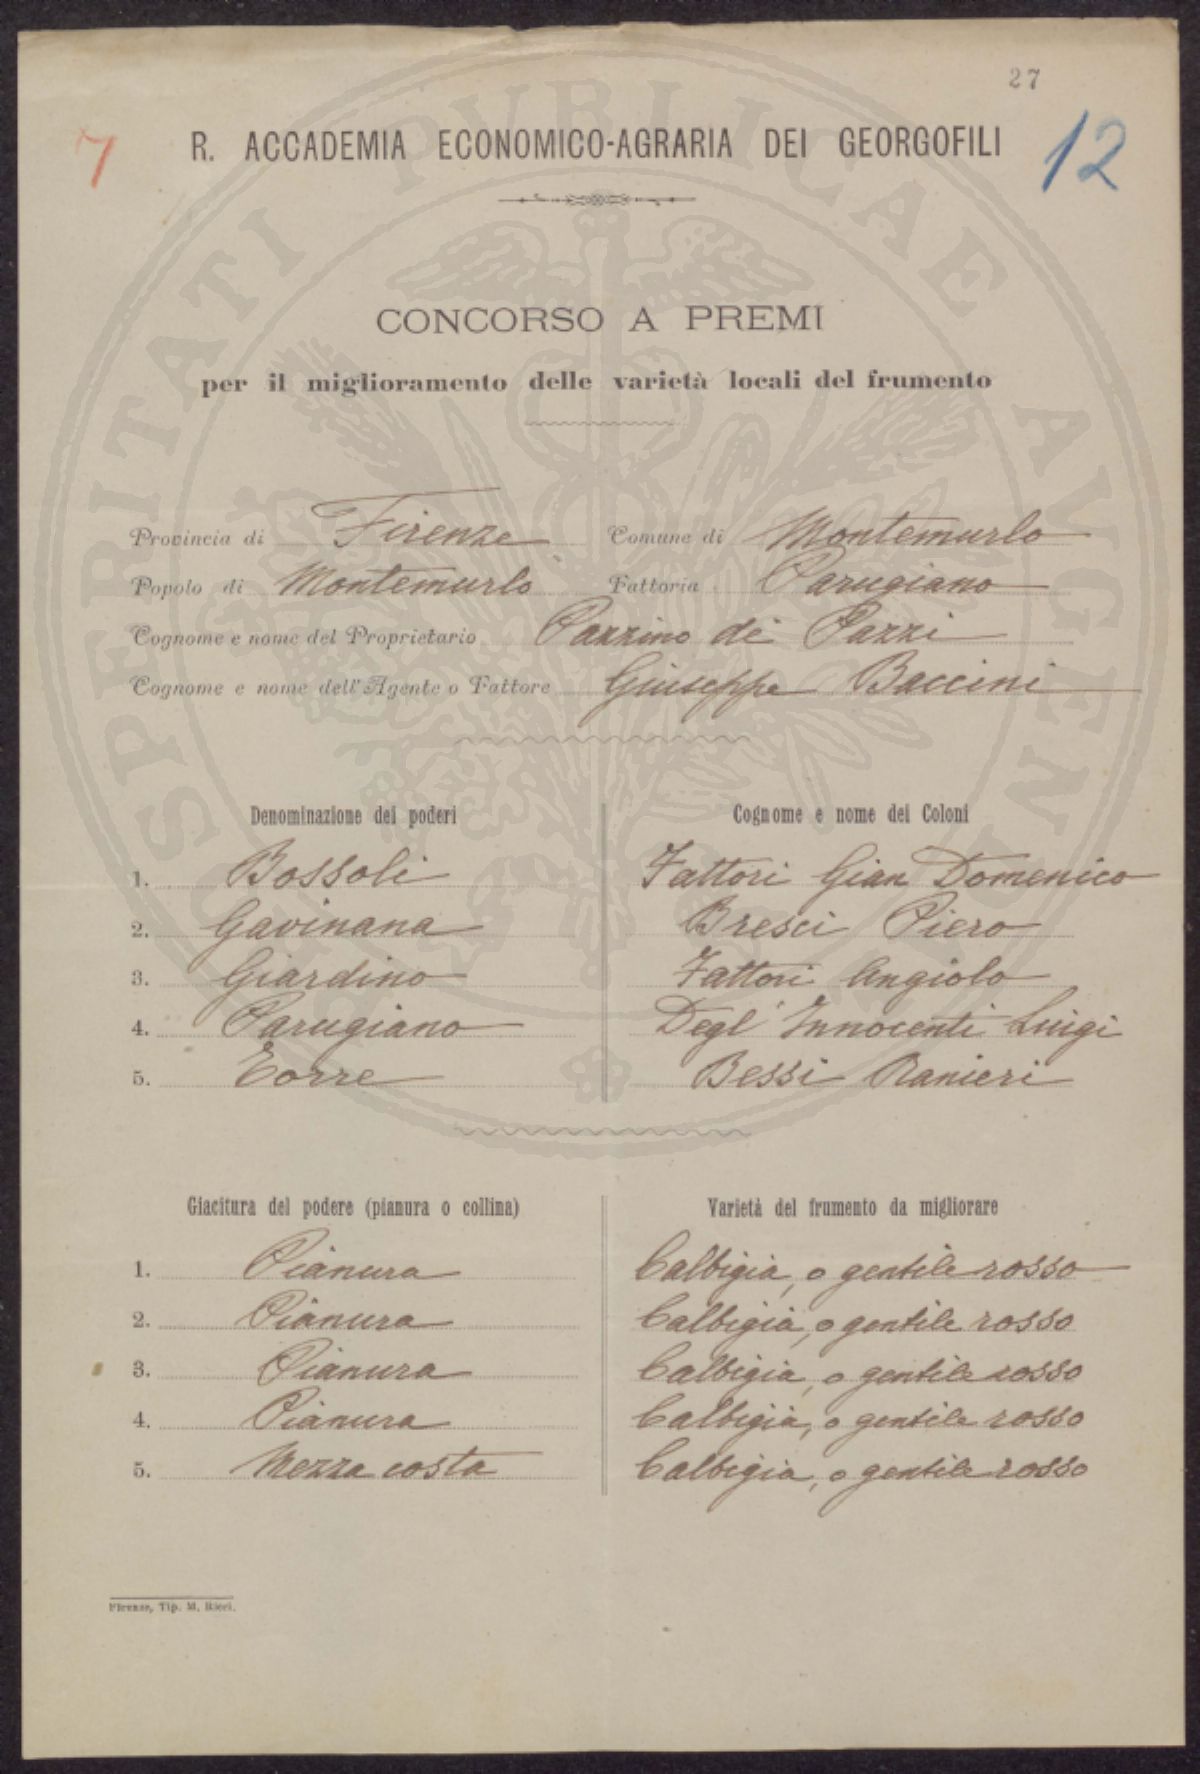 27
7
12
R. ACCADEMIA ECONOMICO-AGRARIA DEI GEORGOFILI
CONCORSO A PREMI
per il miglioramento delle varietà locali del frumento
Provincia di Firenze Comune di Montemurlo
Popolo di Montemurlo Fattoria Parugiano
Cognome e nome del Proprietario Pazzino de' Pazzi
Cognome e nome dell'Agente o Fattore Giuseppe Baccini
Denominazione dei poderi Cognome e nome dei Coloni
1. Bossoli Fattori Gian Domenico
2. Gavinana Bresci Piero
3. Giardino Fattori Angiolo
4. Parugiano Degl' Innocenti Luigi
5. Torre Bessi Ranieri
Giacitura del podere (pianura o collina) Varietà del frumento da migliorare
1. Pianura Calbigia, o gentile rosso
2. Pianura Calbigia, o gentile rosso
3. Pianura Calbigia, o gentile rosso
4. Pianura Calbigia, o gentile rosso
5. Mezza costa Calbigia, o gentile rosso
Firenze, Tip. M. Ricci.
PROSPERITATI PUBLICAE AUGENDAE